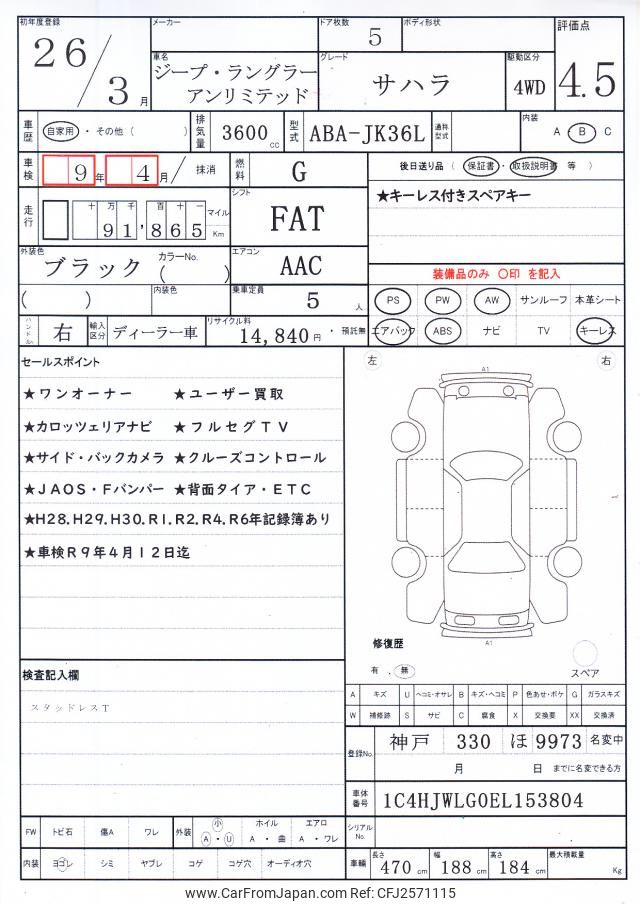 初年度登録 メーカー ドア枚数 ボディ形状 評価点
26/3月 5 4.5
車名 グレード 駆動区分
ジープ・ラングラー サハラ 4WD
アンリミテッド
車歴 自家用・その他( ) 排気量 3600cc 型式 ABA-JK36L 通称型式 内装 A・B C
車検 9年 4月/ 抹消 燃料 G 後日送り品(保証書・取扱説明書 等)
走行 十万千百十一 91,865 マイル Km シフト FAT ★キーレス付きスペアキー
外装色 ブラック カラーNo.( ) エアコン AAC 装備品のみ 〇印 を記入
( ) 内装色 乗車定員 5人 PS PW AW サンルーフ 本革シート
ハンドル 右 輸入区分 ディーラー車 リサイクル料 14,840円・預託無 エアバック ABS ナビ TV キーレス
セールスポイント 左 右
★ワンオーナー ★ユーザー買取
★カロッツェリアナビ ★フルセグTV
★サイド・バックカメラ ★クルーズコントロール
★JAOS・Fバンパー ★背面タイア・ETC
★H28.H29.H30.R1.R2.R4.R6年記録簿あり
★車検R9年4月12日迄
A1
A1
修復歴
有.無 スペア
検査記入欄
スタッドレスT
A キズ U ヘコミ・オサレ B キズ・ヘコミ P 色あせ・ボケ G ガラスキズ
W 補修跡 S サビ C 腐食 X 交換要 XX 交換済
登録No. 神戸 330 ほ 9973 名変中
月 日 までに名変できる方
車体番号 1C4HJWLG0EL153804
シリアルNo.
FW トビ石 傷A ワレ 外装 小 A・U ホイル A・曲 エアロ A・ワレ
内装 ヨゴレ シミ ヤブレ コゲ コゲ穴 オーディオ穴
車輛 長さ 470cm 幅 188cm 高さ 184cm 最大積載量 Kg
www.CarFromJapan.com Ref: CFJ2571115